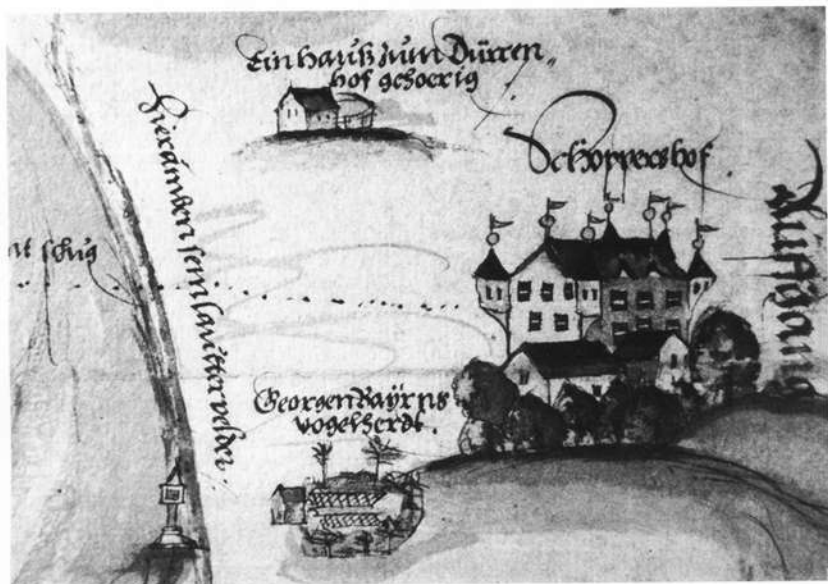 Ein hauß zum Dürren-
hof gehoerig
Schoppershof
Hieramben sein lautter velder.
schuß
Georgen Bayrns
vogelherdt.
Auffgang